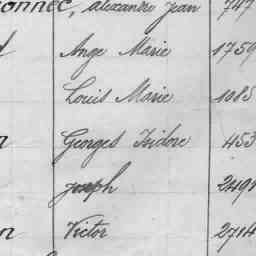 onnec, alexandre jean 747
Ange Marie 1759
Louis Marie 1085
n Georges Isidore 453
joseph 2491
n Victor 2714